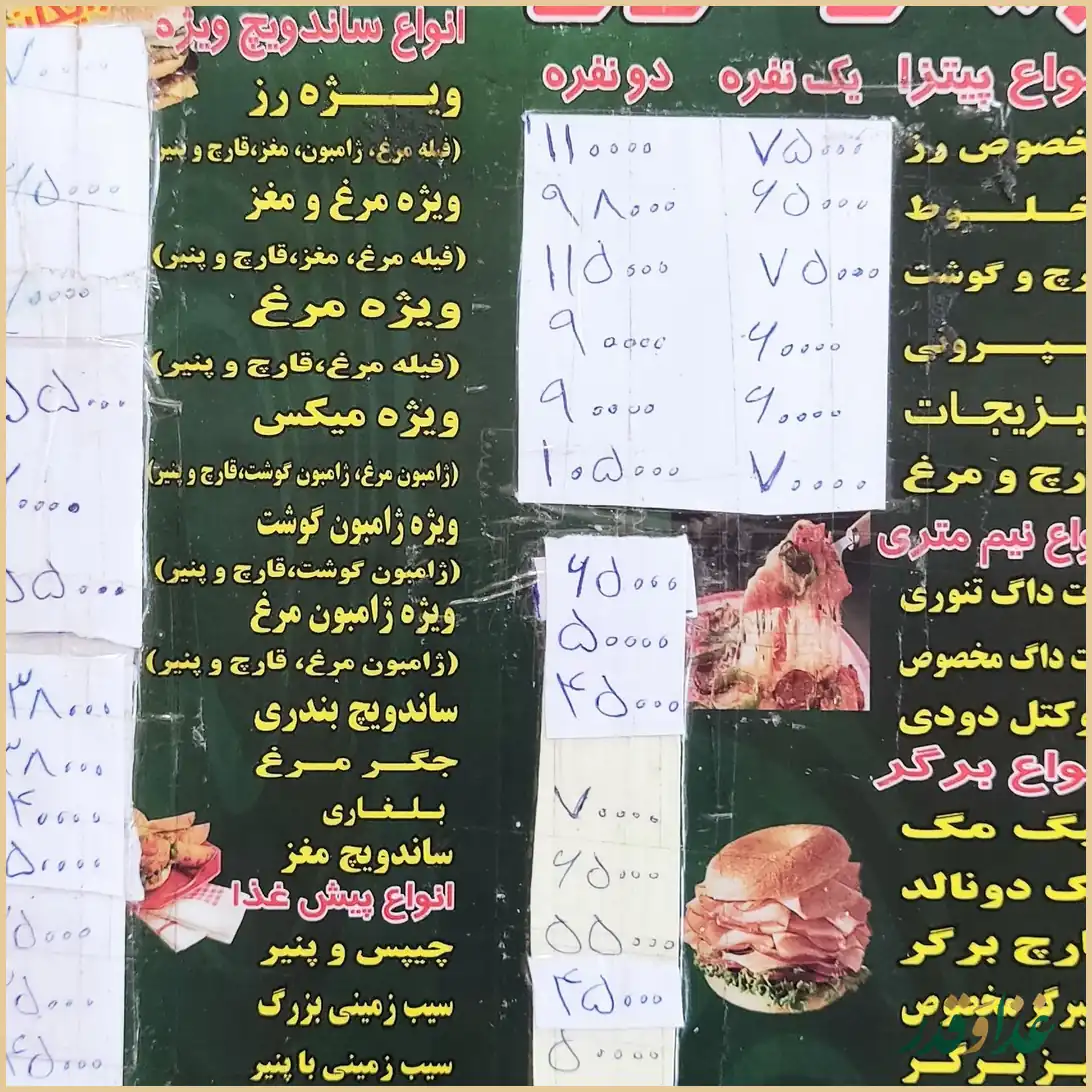 انواع پیتزا یک نفره دو نفره
مخصوص رز ۷۵۰۰۰ ۱۱۰۰۰۰
مخلوط ۶۵۰۰۰ ۹۸۰۰۰
قارچ و گوشت ۷۵۰۰۰ ۱۱۵۰۰۰
پپرونی ۶۰۰۰۰ ۹۰۰۰۰
سبزیجات ۶۰۰۰۰ ۹۰۰۰۰
قارچ و مرغ ۷۰۰۰۰ ۱۰۵۰۰۰
انواع نیم متری
هات داگ تنوری ۶۵۰۰۰
هات داگ مخصوص ۵۰۰۰۰
کوکتل دودی ۴۵۰۰۰
انواع برگر
بیگ مگ ۷۰۰۰۰
مک دونالد ۶۵۰۰۰
قارچ برگر ۵۵۰۰۰
برگر مخصوص ۴۵۰۰۰
چیز برگر ۵۰۰۰۰
انواع ساندویچ ویژه
ویژه رز
(فیله مرغ، ژامبون، مغز،قارچ و پنیر)
ویژه مرغ و مغز
(فیله مرغ، مغز،قارچ و پنیر)
ویژه مرغ
(فیله مرغ،قارچ و پنیر)
ویژه میکس ۵۵۰۰۰
(ژامبون مرغ، ژامبون گوشت،قارچ و پنیر)
ویژه ژامبون گوشت
(ژامبون گوشت،قارچ و پنیر)
ویژه ژامبون مرغ ۵۵۰۰۰
(ژامبون مرغ، قارچ و پنیر)
ساندویچ بندری ۳۸۰۰۰
جگر مرغ ۳۸۰۰۰
بلغاری ۴۰۰۰۰
ساندویچ مغز ۵۰۰۰۰
انواع پیش غذا
چیپس و پنیر
سیب زمینی بزرگ
سیب زمینی با پنیر ۴۵۰۰۰
غذا و قدر